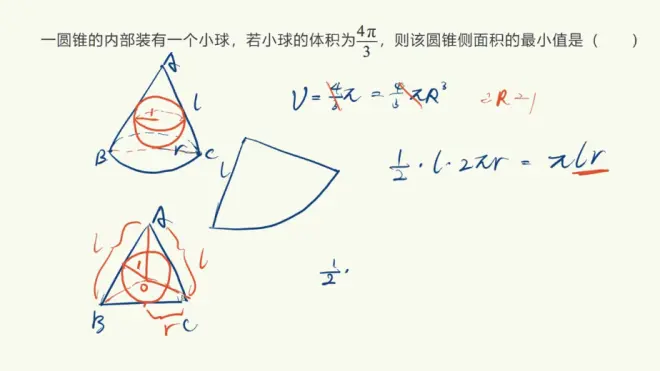 一圆锥的内部装有一个小球，若小球的体积为4π/3，则该圆锥侧面积的最小值是（　　）
A
l
V = 4/3 π = 4/3 πR³ ∴R=1
r
B
r
C
l
1/2 · l · 2πr = πlr
A
l
1
l
O
1/2 ·
B
r
C